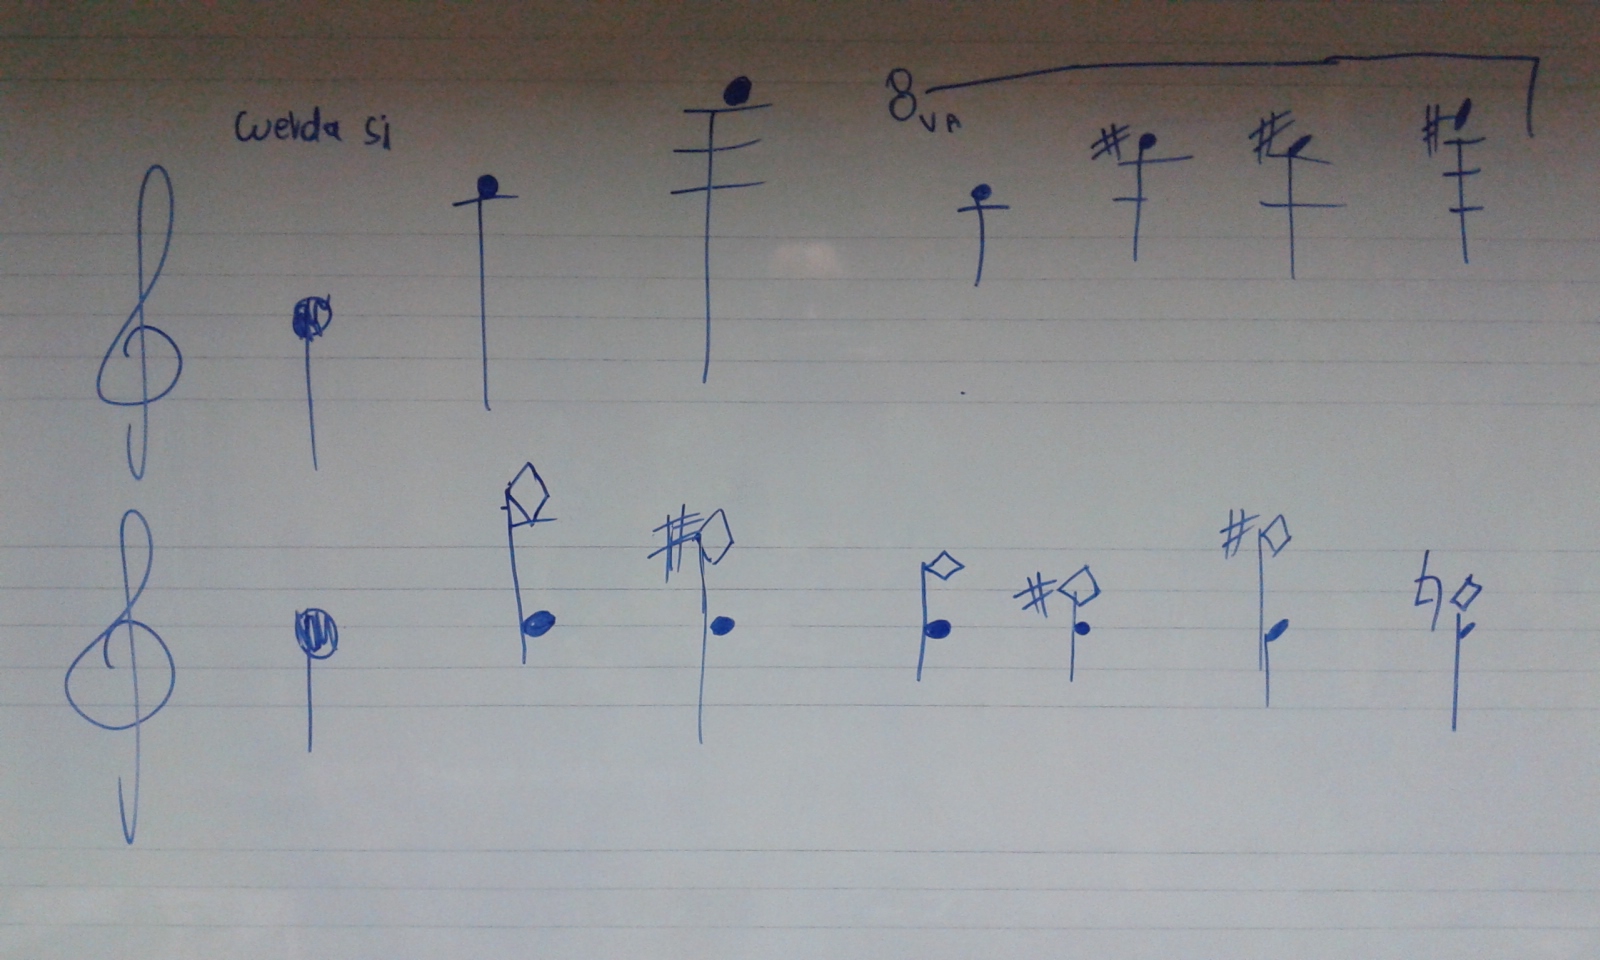 Cuerda si
8va